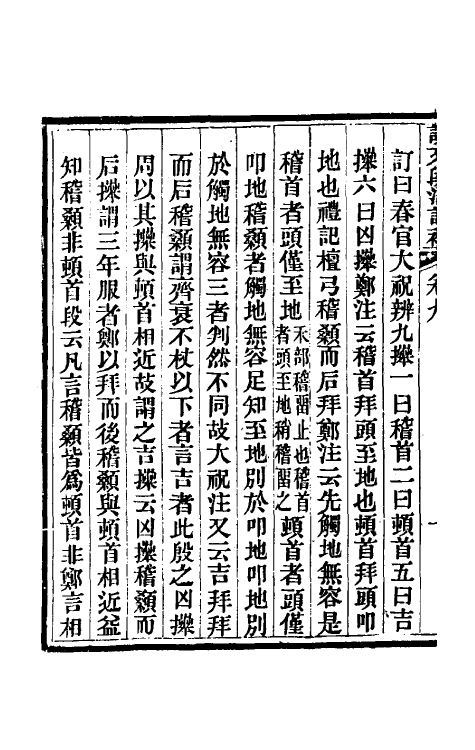 說文段注訂補 卷九
訂曰春官大祝辨九𢷎一曰稽首二曰頓首五曰吉
𢷎六曰凶𢷎鄭注云稽首拜頭至地也頓首拜頭叩
地也禮記檀弓稽顙而后拜鄭注云先觸地無容是
稽首者頭僅至地禾部稽畱止也稽首者頭至地稍稽畱之頓首者頭僅
叩地稽顙者觸地無容足知至地別於叩地叩地別
於觸地無容三者判然不同故大祝注又云吉拜拜
而后稽顙謂齊衰不杖以下者言吉者此殷之凶𢷎
周以其𢷎與頓首相近故謂之吉𢷎云凶𢷎稽顙而
后𢷎謂三年服者鄭以拜而後稽顙與頓首相近益
知稽顙非頓首段云凡言稽顙皆爲頓首非鄭言相